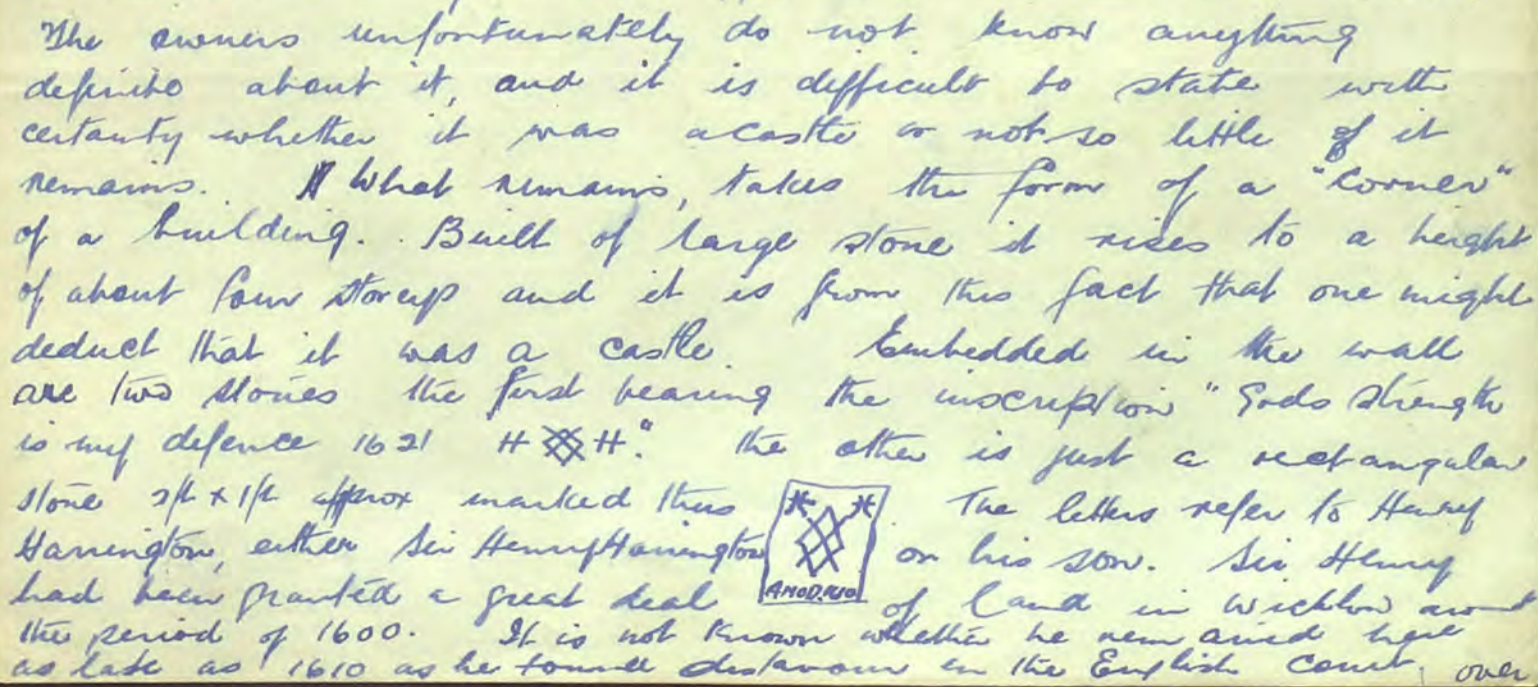 The owners unfortunately do not know anything
definite about it, and it is difficult to state with
certanty whether it was a castle or not so little of it
remains. What remains, takes the form of a "corner"
of a building. Built of large stone it rises to a height
of about four storeys and it is from this fact that one might
deduct that it was a castle Embedded in the wall
are two stones the first bearing the inscription "Gods strength
is my defence 1621 H H." the other is just a rectangular
stone 2ft x 1ft approx marked thus H H The letters refer to Henry
Harrington, either Sir Henry Harrington or his son. Sir Henry
had been granted a great deal ANOD.1610 of land in Wicklow around
the period of 1600. It is not known whether he remained here
as late as 1610 as he found disfavour in the English Court, over